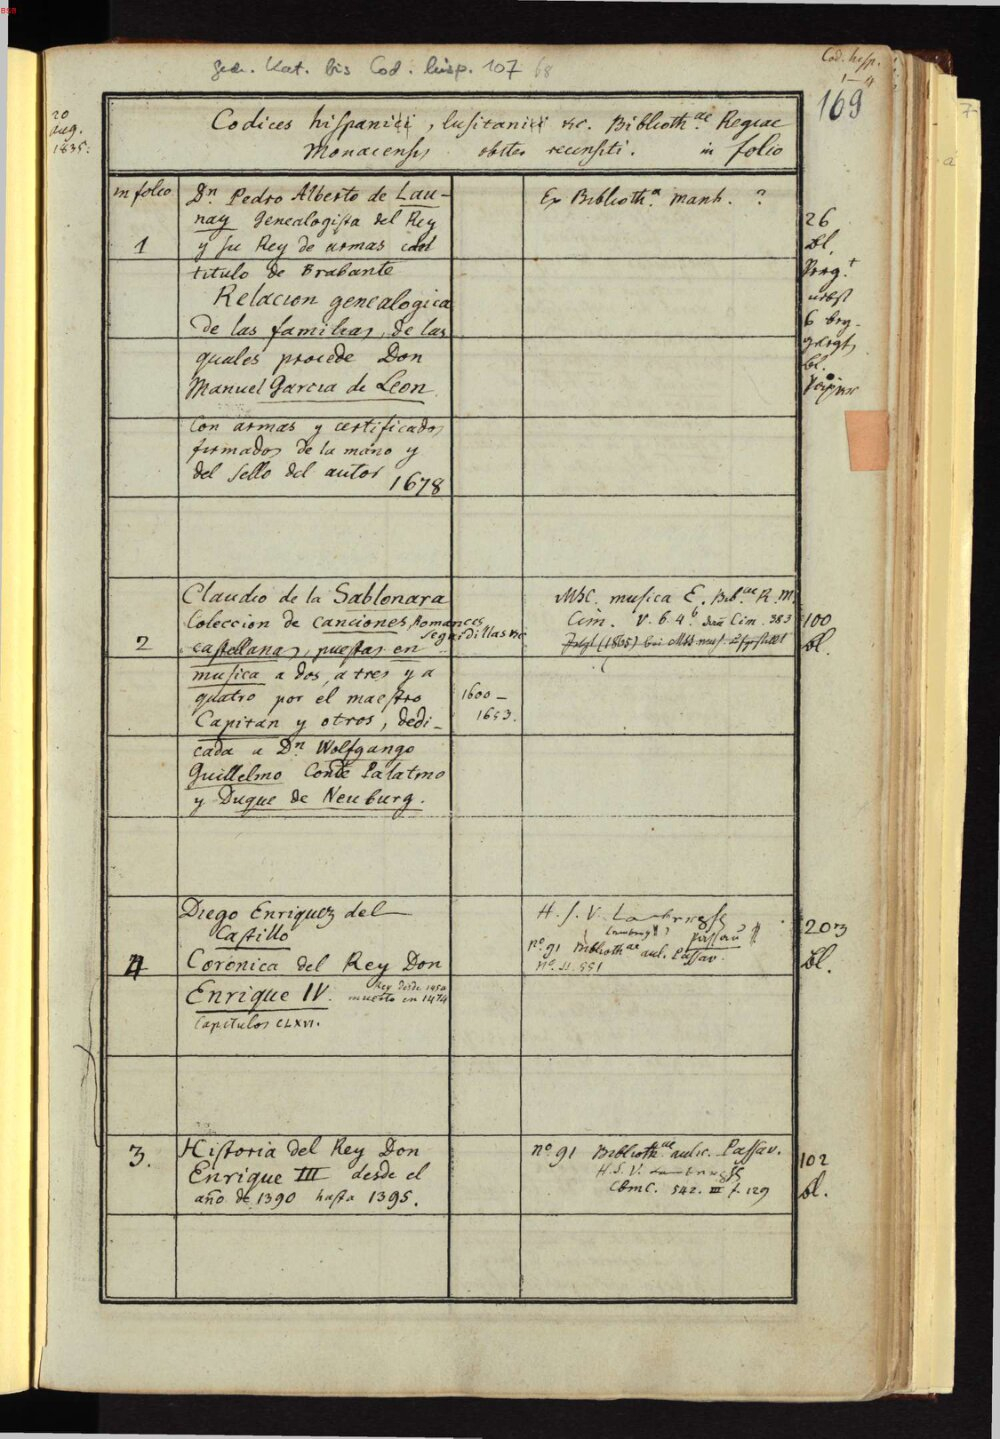 BSB
gedr. Kat. bis Cod. hisp. 107
68
Cod. hisp.
1–4
169
20
Aug.
1835.
Codices hispanici, lusitanici &c. Biblioth.ae Regiae
Monacensis obiter recensiti. in folio
in folio
1
Dn Pedro Alberto de Lau-
nay Genealogista del Rey
y su Rey de armas con
titulo de Brabante
Relacion genealogica
de las familias, de las
quales procede Don
Manuel Garcia de Leon
Con armas y certificados
firmados de la mano y
del sello del autor
1678
Ex Biblioth.a manh. ?
26
bl.
Perg.t
nebst
6 bey-
bl.
Papier
2
Claudio de la Sablonara
Coleccion de canciones, Romances,
Seguidillas &c
castellanas, puestas en
musica a dos, a tres y a
quatro por el maestro
Capitan y otros, dedi-
cada a Dn. Wolfgango
Guillelmo Conde Palatino
y Duque de Neuburg.
1600–
1653.
Msc. musica E. Bib.ae R. M.
Cim. V. 6. 4.b Cim. 383
Jetzt (1865) bei Mss. mus. aufgestellt
100
bl.
4
Diego Enriquez del
Castillo
Coronica del Rey Don
Enrique IV.
Rey desde 1454
muerto en 1474
Capitulos CLXVI.
H. S. V. Lamberg
Passau
no. 91 Biblioth.ae aul. Passav.
no. 551
203
bl.
3.
Historia del Rey Don
Enrique III desde el
año de 1390 hasta 1395.
no. 91 Biblioth.ae aulic. Passav.
H. S. V. Lamberg
CbmC. 542. III f. 129
102
bl.